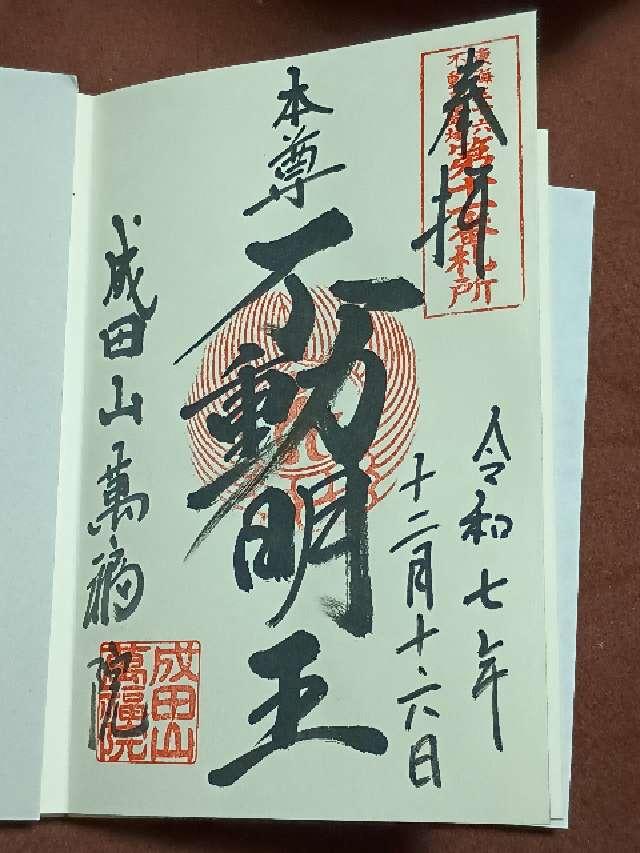 奉拝
不動
札所
令和七年
十二月十六日
本尊
不動明王
成田山萬福院
成田山
萬福院